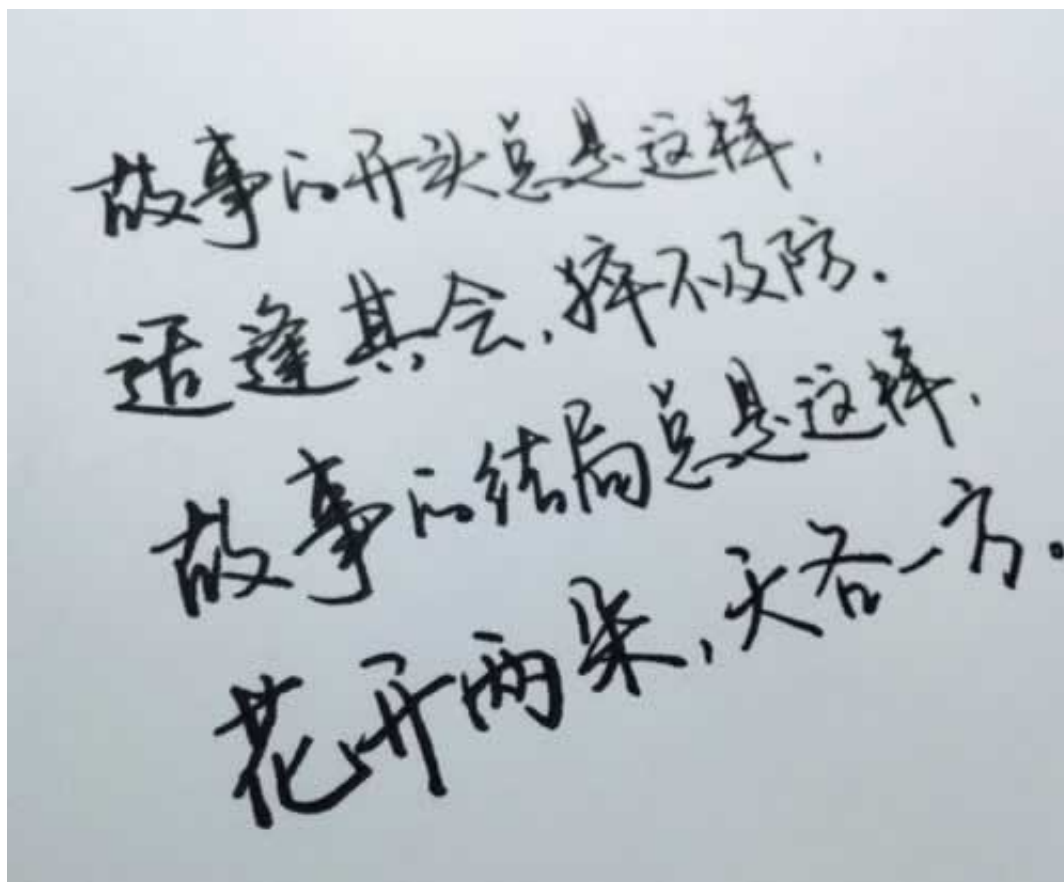 故事的开头总是这样，
适逢其会，猝不及防。
故事的结局总是这样，
花开两朵，天各一方。